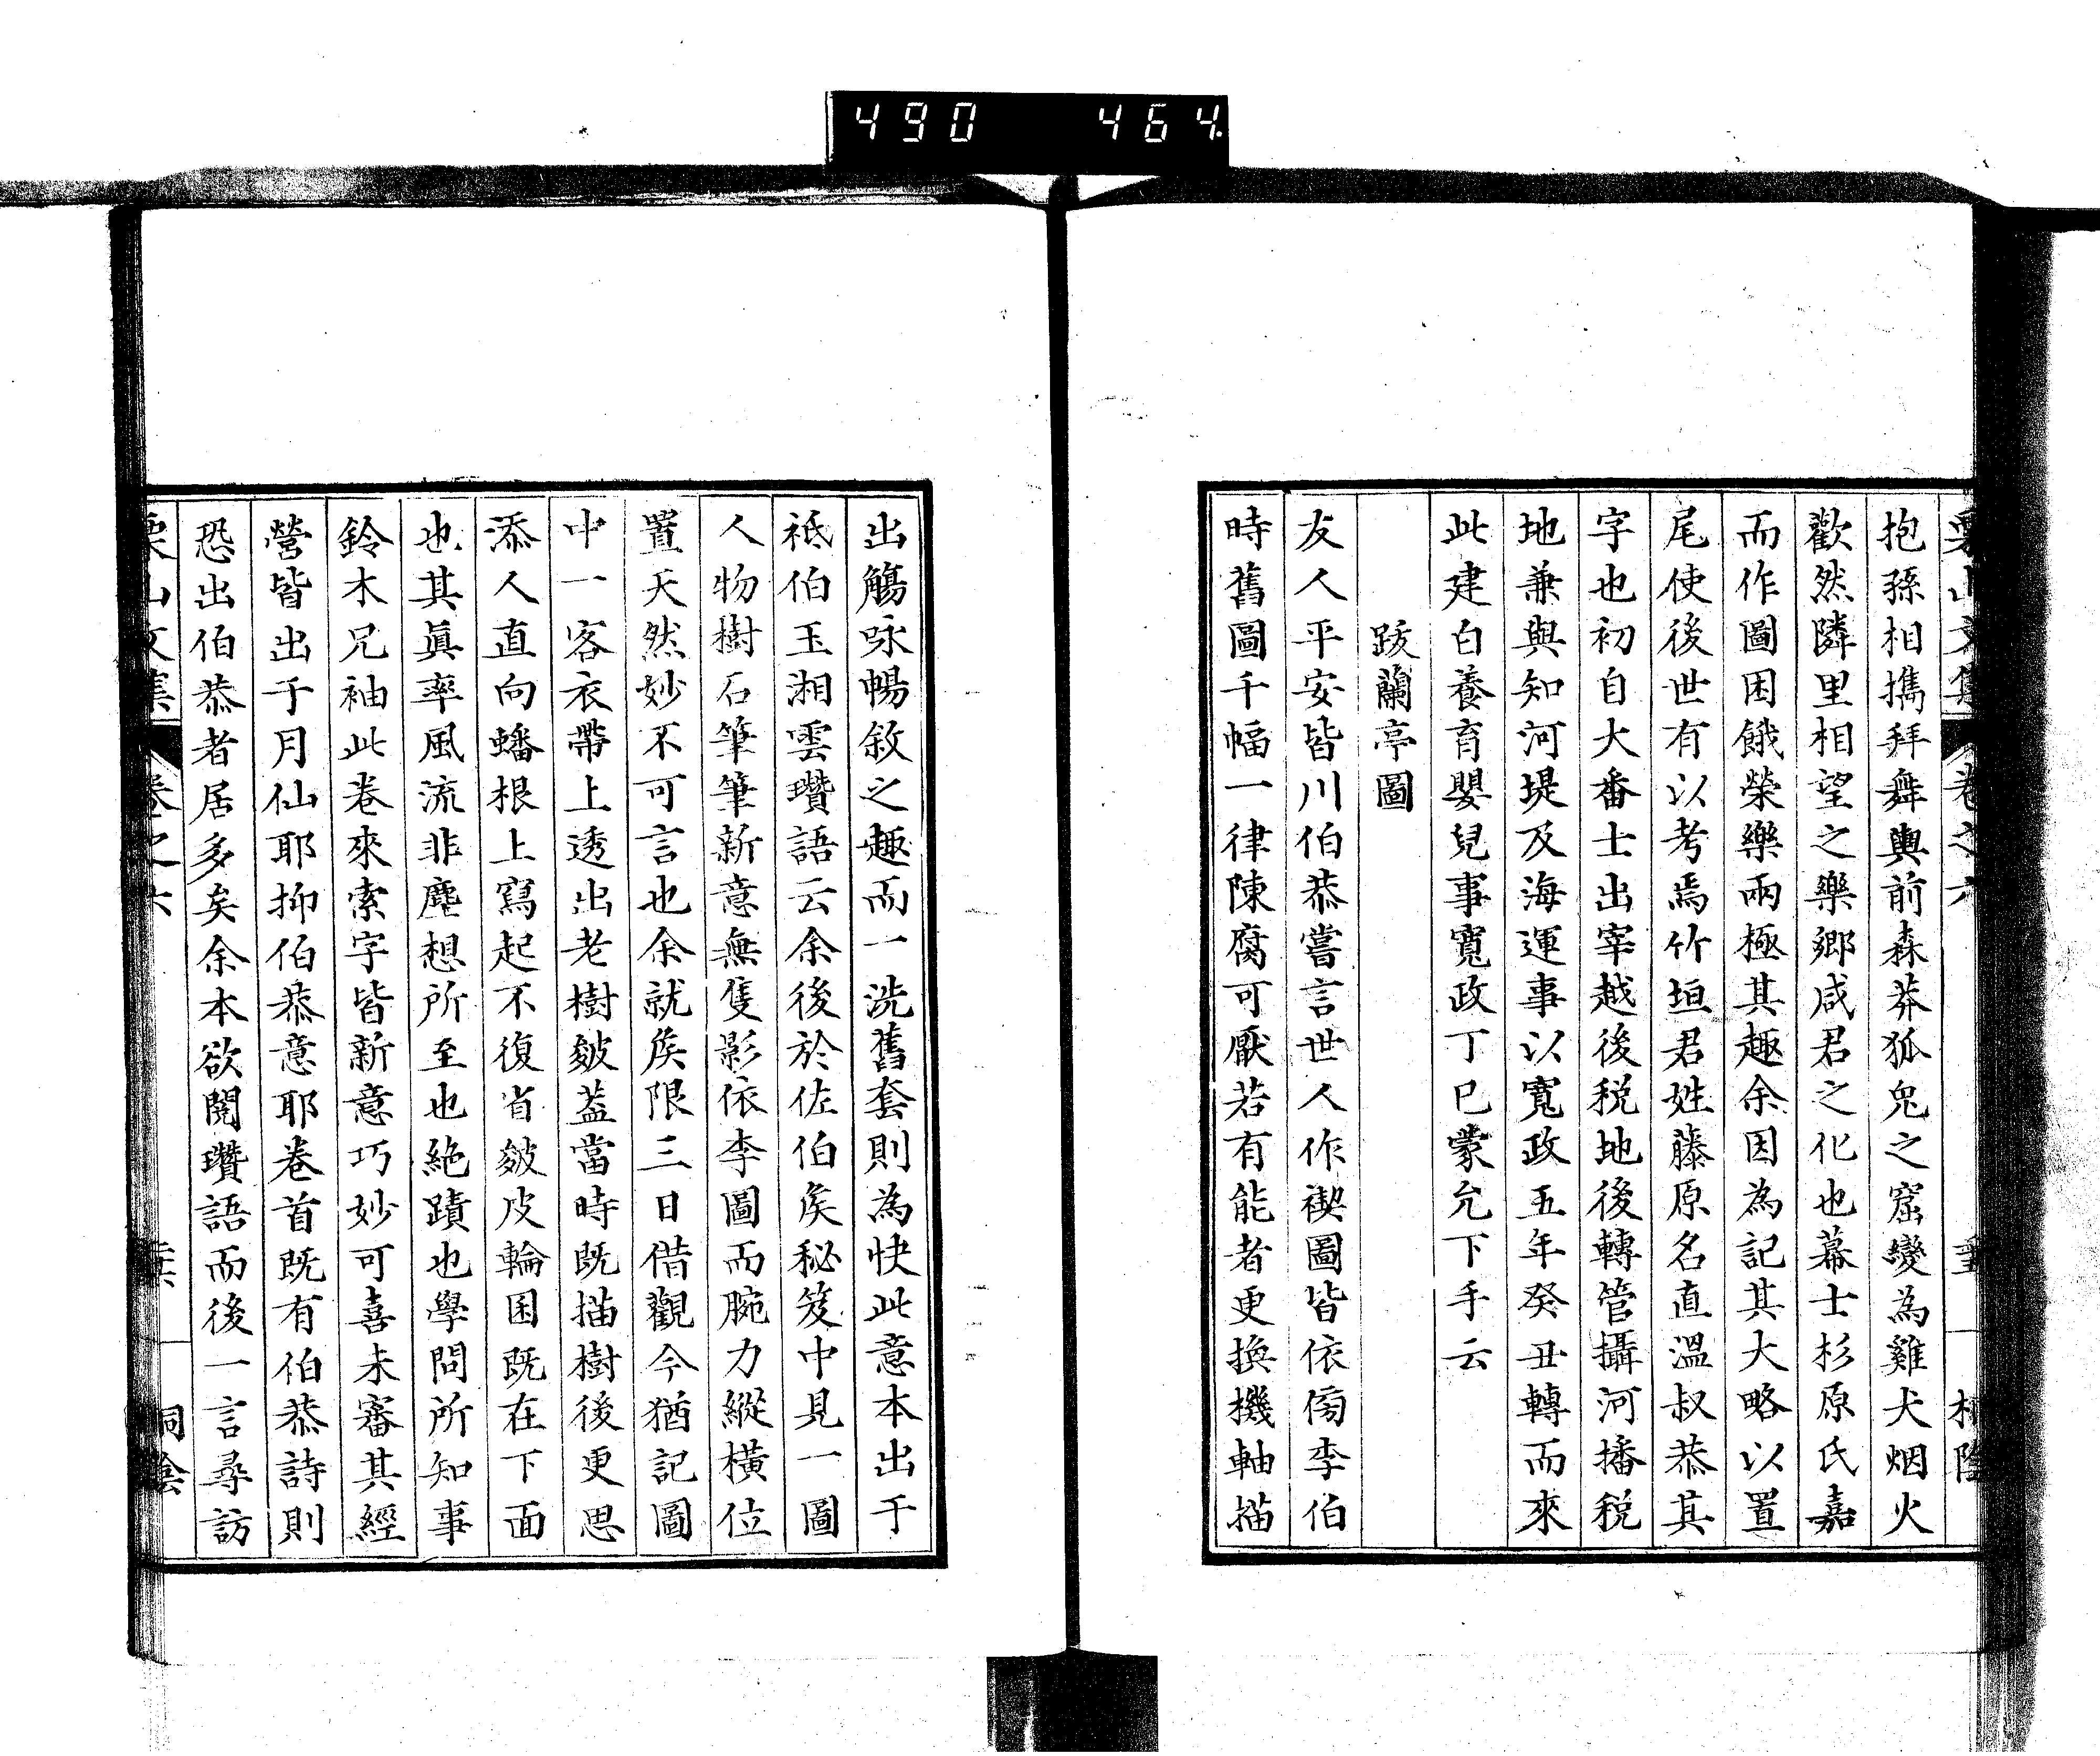 490 464.
抱孫相攜拜舞輿前森莽狐兔之窟變為雞犬烟火
歡然隣里相望之樂鄉咸君之化也幕士杉原氏嘉
而作圖困餓榮樂兩極其趣余因為記其大略以置
尾使後世有以考焉竹垣君姓藤原名直溫叔恭其
字也初自大番士出宰越後税地後轉管攝河播税
地兼與知河堤及海運事以寬政五年癸丑轉而來
此建白養育嬰兒事寬政丁巳蒙允下手云
跋蘭亭圖
友人平安皆川伯恭嘗言世人作禊圖皆依傍李伯
時舊圖千幅一律陳腐可厭若有能者更換機軸描
出觴咏暢敘之趣而一洗舊套則為快此意本出于
祗伯玉湘雲瓚語云余後於佐伯矦秘笈中見一圖
人物樹石筆筆新意無隻影依李圖而腕力縱橫位
置天然妙不可言也余就矦限三日借觀今猶記圖
中一客衣帶上透出老樹皴蓋當時既描樹後更思
添人直向蟠根上寫起不復省皴皮輪囷既在下面
也其眞率風流非塵想所至也絶蹟也學問所知事
鈴木兄袖此卷來索字皆新意巧妙可喜未審其經
營皆出于月仙耶抑伯恭意耶卷首既有伯恭詩則
恐出伯恭者居多矣余本欲閱瓚語而後一言尋訪
栗山文集 卷之六